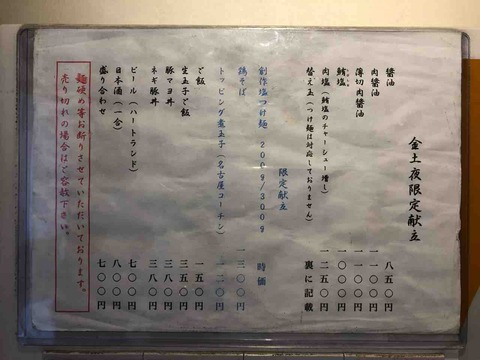 金土夜限定献立
醤油 八五〇円
肉醤油 一一〇〇円
薄切肉醤油 一一〇〇円
塩 一〇〇〇円
肉塩(塩のチャーシュー増し) 一二五〇円
替え玉(つけ麺は対応しておりません) 裏に記載
限定献立
創作塩つけ麺 200g/300g 時価
鶏そば 一三〇〇円
トッピング煮玉子(名古屋コーチン) 一二〇円
ご飯 一五〇円
生玉子ご飯 三五〇円
豚マヨ丼 三八〇円
ネギ豚丼 三八〇円
ビール(ハートランド) 七〇〇円
日本酒(一合) 八〇〇円
盛り合わせ 七〇〇円
麺硬め等お断りさせていただいております。
売り切れの場合はご容赦下さい。